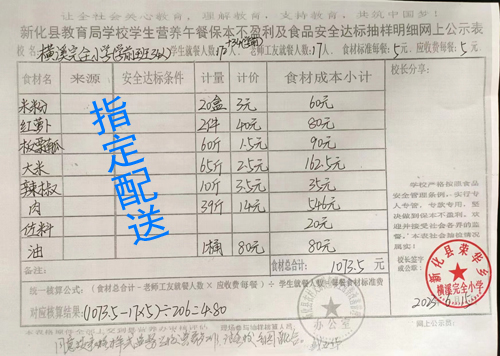 让全社会关心教育，理解教育，支持教育，共筑中国梦！
新化县教育局学校学生营养午餐保本不盈利及食品安全达标抽样明细网上公示表
校名：横溪完全小学 学生就餐人数： 老师工友就餐人数：17人 食材标准每餐：5元 应收费每餐：5元
食材名 来源 安全达标条件 计量 计价 食材成本小计 校长分享：
米粉 20盒 3元 60元
红萝卜 2件 40元 80元
60斤 1.5元 90元
大米 65斤 2.5元 162.5元
辣椒 10斤 3.5元 35元
肉 39斤 14元 546元
佐料 20元
油 1桶 80元 80元
指定配送
学校严格按照食品安全管理条例，实行专人专管，专款专用，坚决做到保本不盈利，欢迎并接受社会各界的监督。本表社会抽查情况属实！
备注： 食材总合计：1073.5元
校长签字或公章：
新化县荣华乡
横溪完全小学
统一核算公式：（食材总合计－老师工友就餐人数×应收费每餐）÷学生就餐人数＜每餐食材标准费
对应核算结果：(1073.5-17×5)÷206=4.80
办公室
网上公示员：